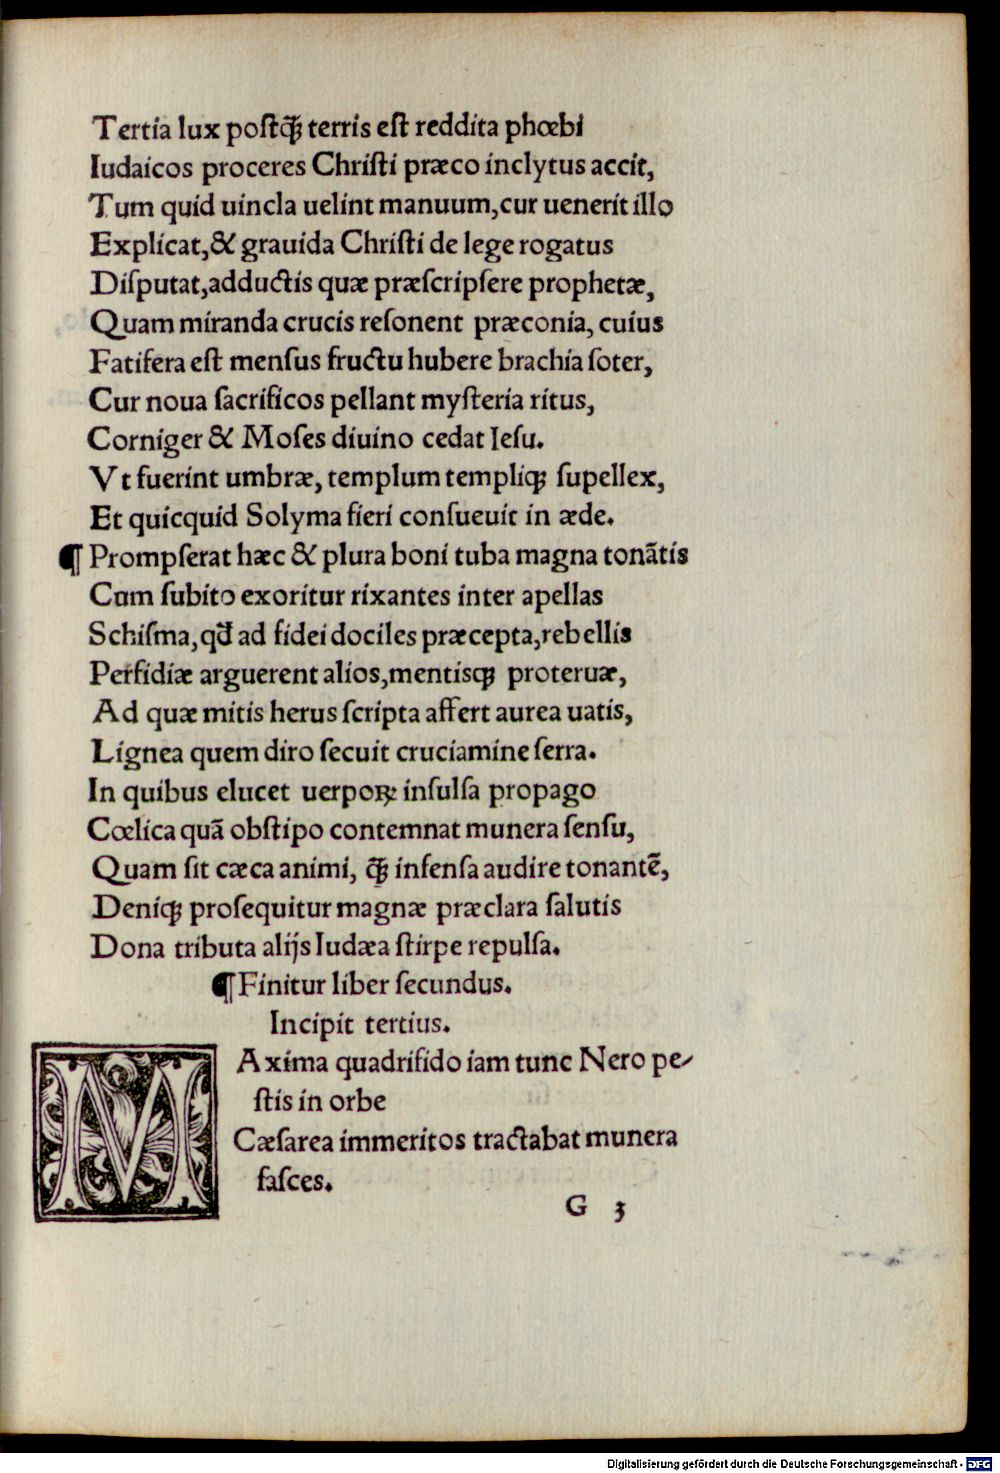 Tertia lux poſtꝙ̃ terris eſt reddita phœbi
Iudaicos proceres Chriſti præco inclytus accit,
Tum quid uincla uelint manuum,cur uenerit illo
Explicat,& grauida Chriſti de lege rogatus
Diſputat,adductis quæ præſcripſere prophetæ,
Quam miranda crucis reſonent præconia, cuius
Fatifera eſt menſus fructu hubere brachia ſoter,
Cur noua ſacrificos pellant myſteria ritus,
Corniger & Moſes diuino cedat Ieſu.
Vt fuerint umbræ, templum templiqꝫ ſupellex,
Et quicquid Solyma fieri conſueuit in æde.
¶ Prompſerat hæc & plura boni tuba magna tonãtis
Cum ſubito exoritur rixantes inter apellas
Schiſma,qđ ad fidei dociles præcepta,rebellis
Perfidiæ arguerent alios,mentisqꝫ proteruæ,
Ad quæ mitis herus ſcripta affert aurea uatis,
Lignea quem diro ſecuit cruciamine ſerra.
In quibus elucet uerpoꝝ inſulſa propago
Cœlica quã obſtipo contemnat munera ſenſu,
Quam ſit cæca animi, ꝙ̃ infenſa audire tonantẽ,
Deniqꝫ proſequitur magnæ præclara ſalutis
Dona tributa alijs Iudæa ſtirpe repulſa.
¶Finitur liber ſecundus.
Incipit tertius.
MAxima quadrifido iam tunc Nero pe⸗
ſtis in orbe
Cæſarea immeritos tractabat munera
faſces.
G 3
Digitalisierung gefördert durch die Deutsche Forschungsgemeinschaft - DFG